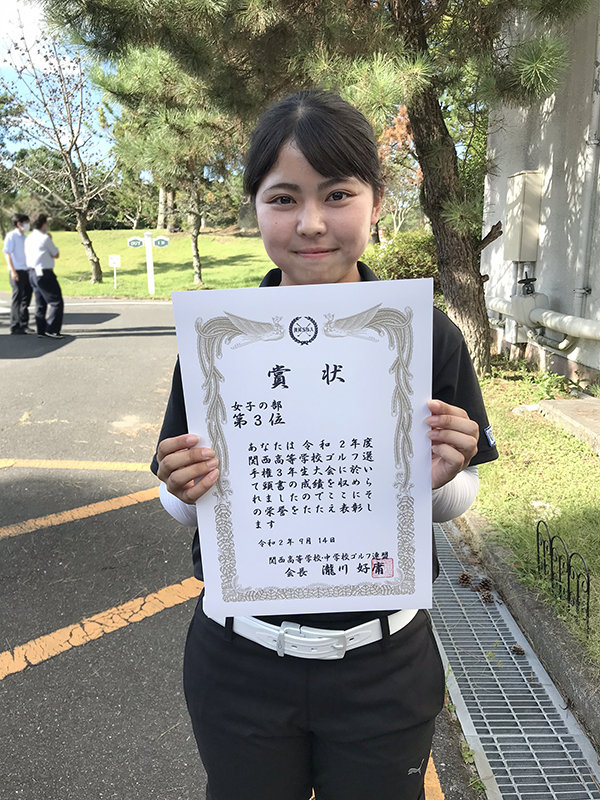 賞状
女子の部
第3位
あなたは令和2年度
関西高等学校ゴルフ選
手権3年生大会に於い
て頭書の成績を収めら
れましたのでここにそ
の栄誉をたたえ表彰し
ます
令和2年9月14日
関西高等学校・中学校ゴルフ連盟
会長 瀧川好庸